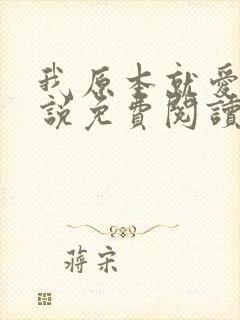 我原本就愛
說免費閱讀
蔣宋